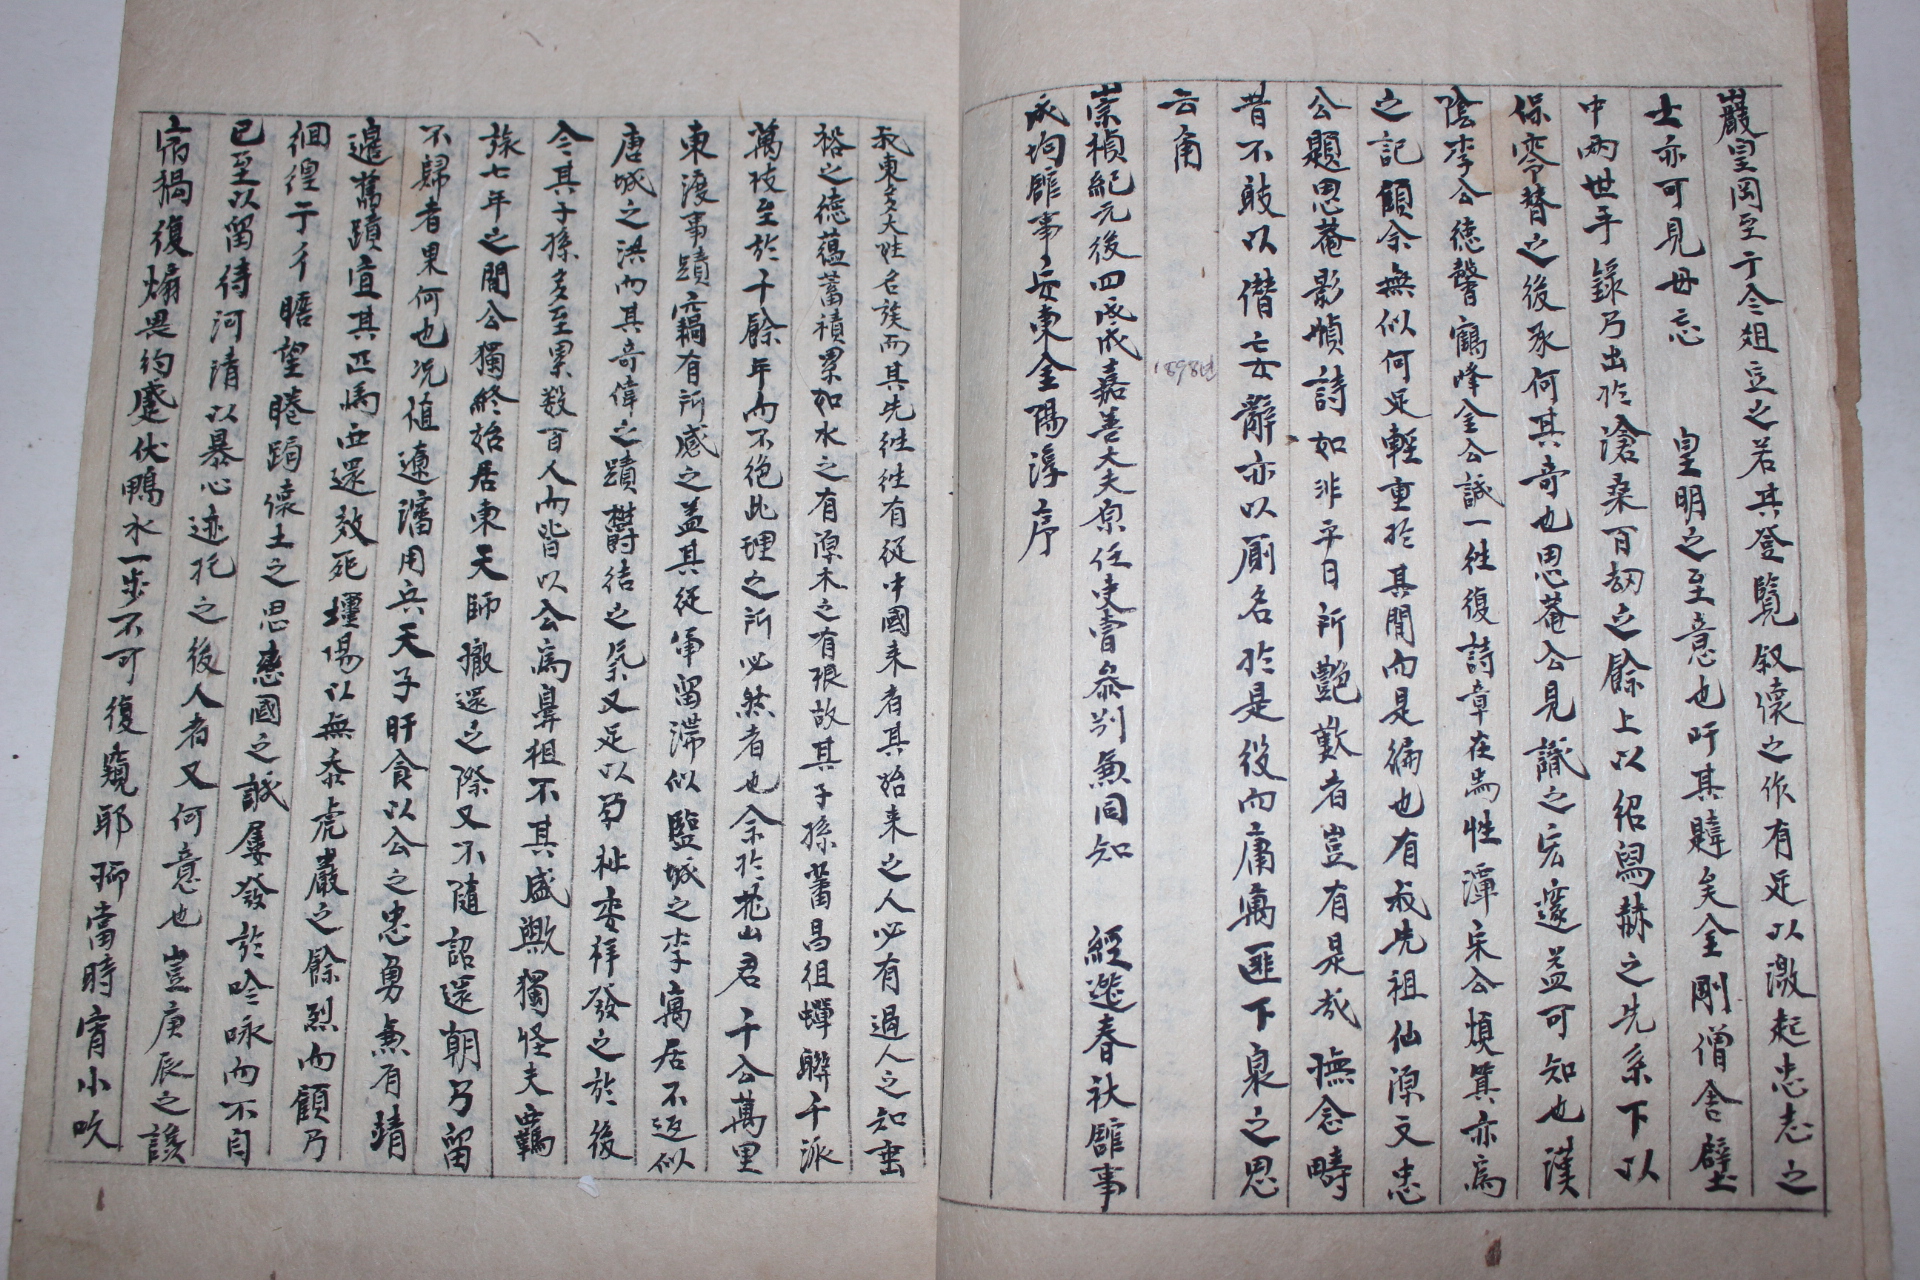 巖皇岡至于今俎豆之若其登覽叙懷之作有足以激起忠志之
士亦可見毋忘 皇明之至意也吁其韙矣金剛僧舍壁
中兩世手錄乃出於滄桑百劫之餘上以紹舄赫之先系下以
保零替之後承何其奇也思菴公見識之宏邃益可知也漢
陰李公德馨鶴峰金公誠一往復詩章在焉性潭宋公煥箕亦爲
之記顧余無似何足輕重於其間而是編也有我先祖仙源文忠
公題思菴影幀詩如非平日所艶歎者豈有是哉撫念疇
昔不敢以僭妄辭亦以厠名於是役而庸寓匪下泉之思
云爾
崇禎紀元後四戊戌嘉善大夫原任吏曹叅判兼同知 經筵春秋舘事
成均舘事安東金陽淳序
1898년
我東多大姓名族而其先徃徃有從中國来者其始来之人必有過人之知垂
裕之德蘊蓄積累如水之有源木之有根故其子孫蕃昌徂蟬聯千派
萬枝至於千餘年而不絶此理之所必然者也余於花山君 千公萬里
東渡事蹟竊有所感之盖其從軍留滞似監城之李寓居不返似
唐城之洪而其奇偉之蹟欝結之氣又足以孕祉委祥發之於後
今其子孫多至累数百人而皆以公爲鼻祖不其盛歟獨怪夫羈
旅七年之間公獨終始居東天師撤還之際又不隨詔還朝乃留
不歸者果何也况値遼瀋用兵天子旰食以公之忠勇兼有靖
邊舊蹟宜其匹馬西還效死壃場以無忝虎巖之餘烈而顧乃
徊徨于千瞻望睠跼懷土之思戀國之誠屢發於吟咏而不自
已至以留待河清以暴心迹托之後人者又何意也豈庚辰之讒
宿禍復煽畏約蹙伏鴨水一步不可復窺耶抑當時宵小吹